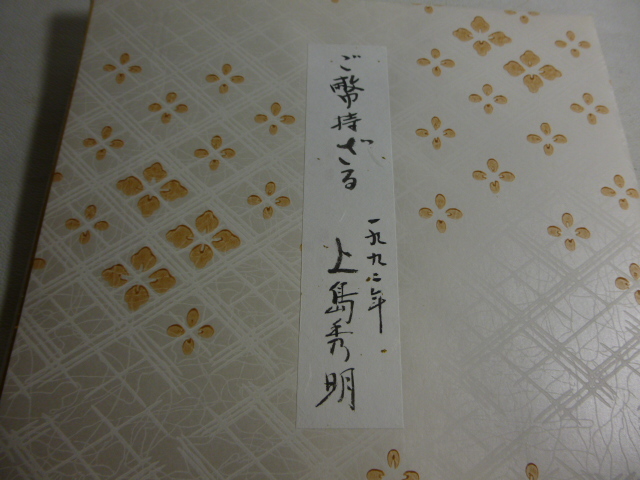 ご幣持ざる
一九九二年
上島秀明